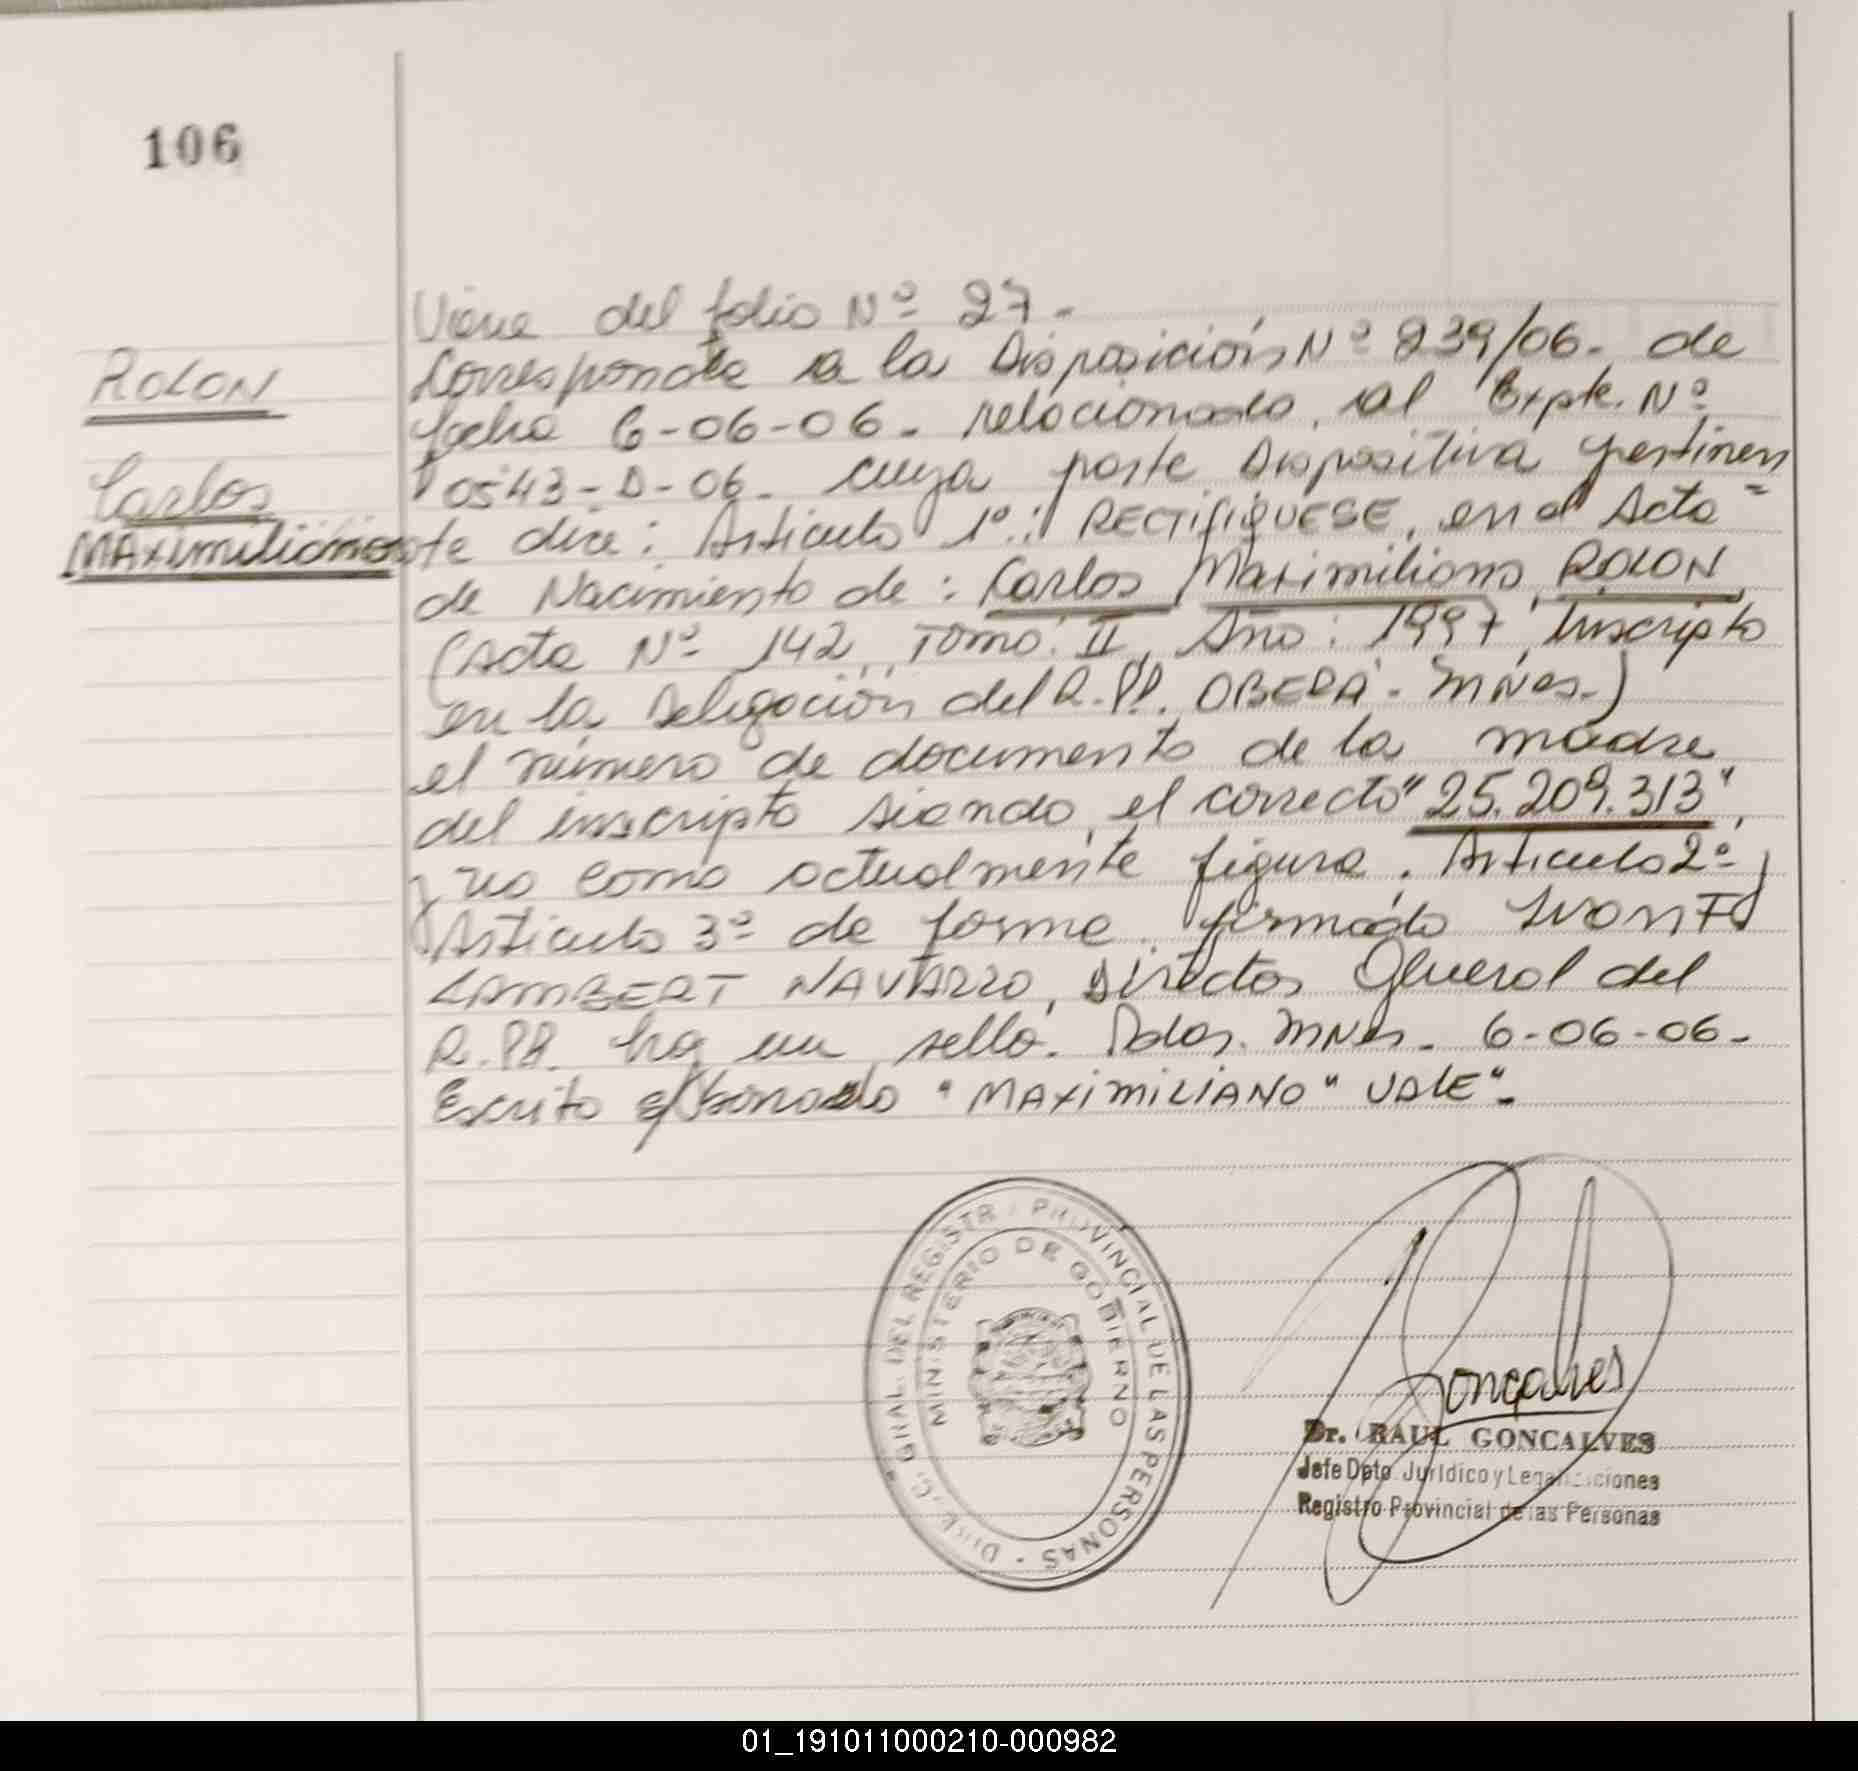 106
Viene del folio Nº 27.-
ROLON
Corresponde a la Disposición Nº 239/06. de
fecha 6-06-06. relacionado al Expte. Nº
Carlos
0543-D-06. cuya parte Dispositiva pertinen
MAximiliano
te dice: Artículo 1º: RECTIFIQUESE, en el Acta
de Nacimiento de: Carlos Maximiliano ROLON
(Acta Nº 142, Tomo: II, Año: 1997, Inscripto
en la Delegación del R.PP. OBERÁ. MNes.)
el número de documento de la madre
del inscripto siendo el correcto "25.209.313",
y no como actualmente figura. Artículo 2º y
Artículo 3º de forme. firmado
LAMBERT NAVARRO, Director General del
R.PP. hay un sello. Pdas. MNes. 6-06-06-
Escrito s/borrado "MAXIMILIANO" VALE".-
DIREC. GRAL. DEL REGISTR PROVINCIAL DE LAS PERSONAS
MINISTERIO DE GOBIERNO
Goncalves
Dr. RAUL GONCALVES
Jefe Dpto. Jurídico y Legalizaciones
Registro Provincial de las Personas
01_191011000210-000982